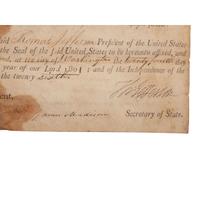 said Thomas Jefferson President of the United States
the Seal of the said United States to be hereunto affixed, and
at the city of Washington the twenty
year of our Lord 1801; and of the Independence of the
the twenty sixth
Th: Jefferson
James Madison Secretary of State.